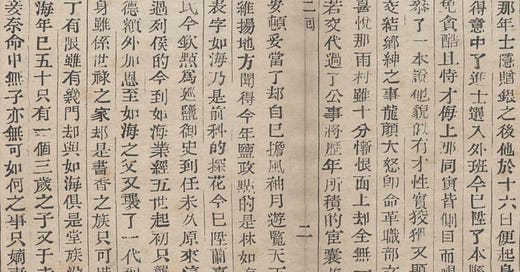 那年士隱贈銀之後他於十六日便起身
得意中了進士選入外班今已陞了本縣
免貪酷且恃才侮上那同寅皆側目而
叅了一本說他貌似有才性實狡猾又題
交結鄉紳之事龍顏大怒卽命革職部
喜悅那雨村雖十分慚恨面上却全無
若交代過了公事將歷年所積的宦囊
二回
二
安頓妥當了却自已擔風袖月遊覽天
維揚地方聞得今年鹽政點的是林如
表字如海乃是前科的探花今已陞蘭臺
氏今欽點爲巡鹽御史到任未久原來這
過列侯的今到如海業經五世起初只
德額外加恩至如海之父又襲了一代
身雖係世祿之家却是書香之族只可
丁有限雖有幾門却與如海俱是堂族沒
海年已五十只有一個三歲之子又于去
妾奈命中無子亦無可如何之事只嫡